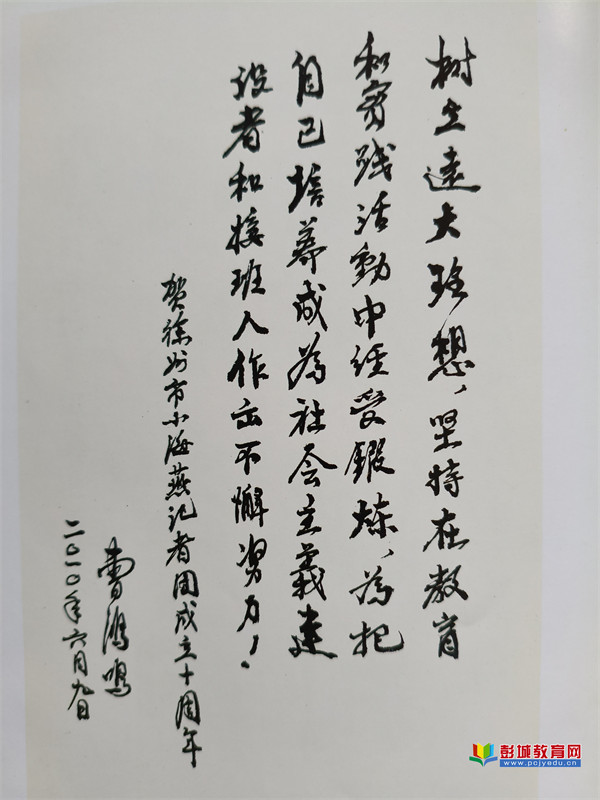 树立遠大理想，坚持在教育
和实践活動中经受鍛炼，为把
自己培养成为社会主義建
设者和接班人作出不懈努力！
贺徐州市小海燕记者团成立十周年
曹鸿鸣
二〇一〇年六月九日
彭城教育网
www.pcjyedu.cn